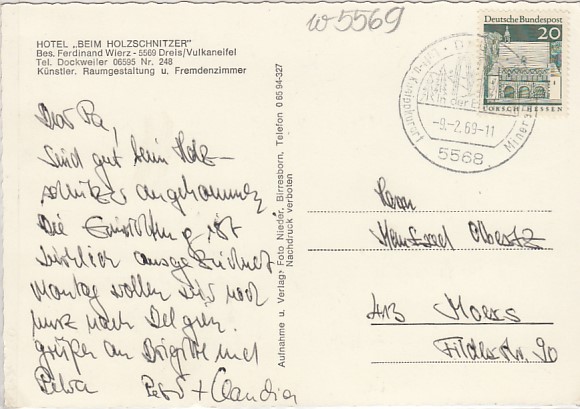 w 5569
HOTEL „BEIM HOLZSCHNITZER"
Bes. Ferdinand Wierz - 5569 Dreis/Vulkaneifel
Tel. Dockweiler 06595 Nr. 248
Künstler. Raumgestaltung u. Fremdenzimmer
sind gut beim Holz-
schnitzer angekommen,
Die Einrichtung ist
wirklich ausgezeichnet
Montag wollen wir noch
kurz nach Belgien.
Grüße an Brigitte und
Petra Peter + Claudia
Aufnahme u. Verlag: Foto Nieder, Birresborn, Telefon 0 65 94-327
Nachdruck verboten
Deutsche Bundespost
20
LORSCH/HESSEN
in der E
-9.-2.69-11
5568
Herrn
Manfred
413 Moers
Filderstr. 90